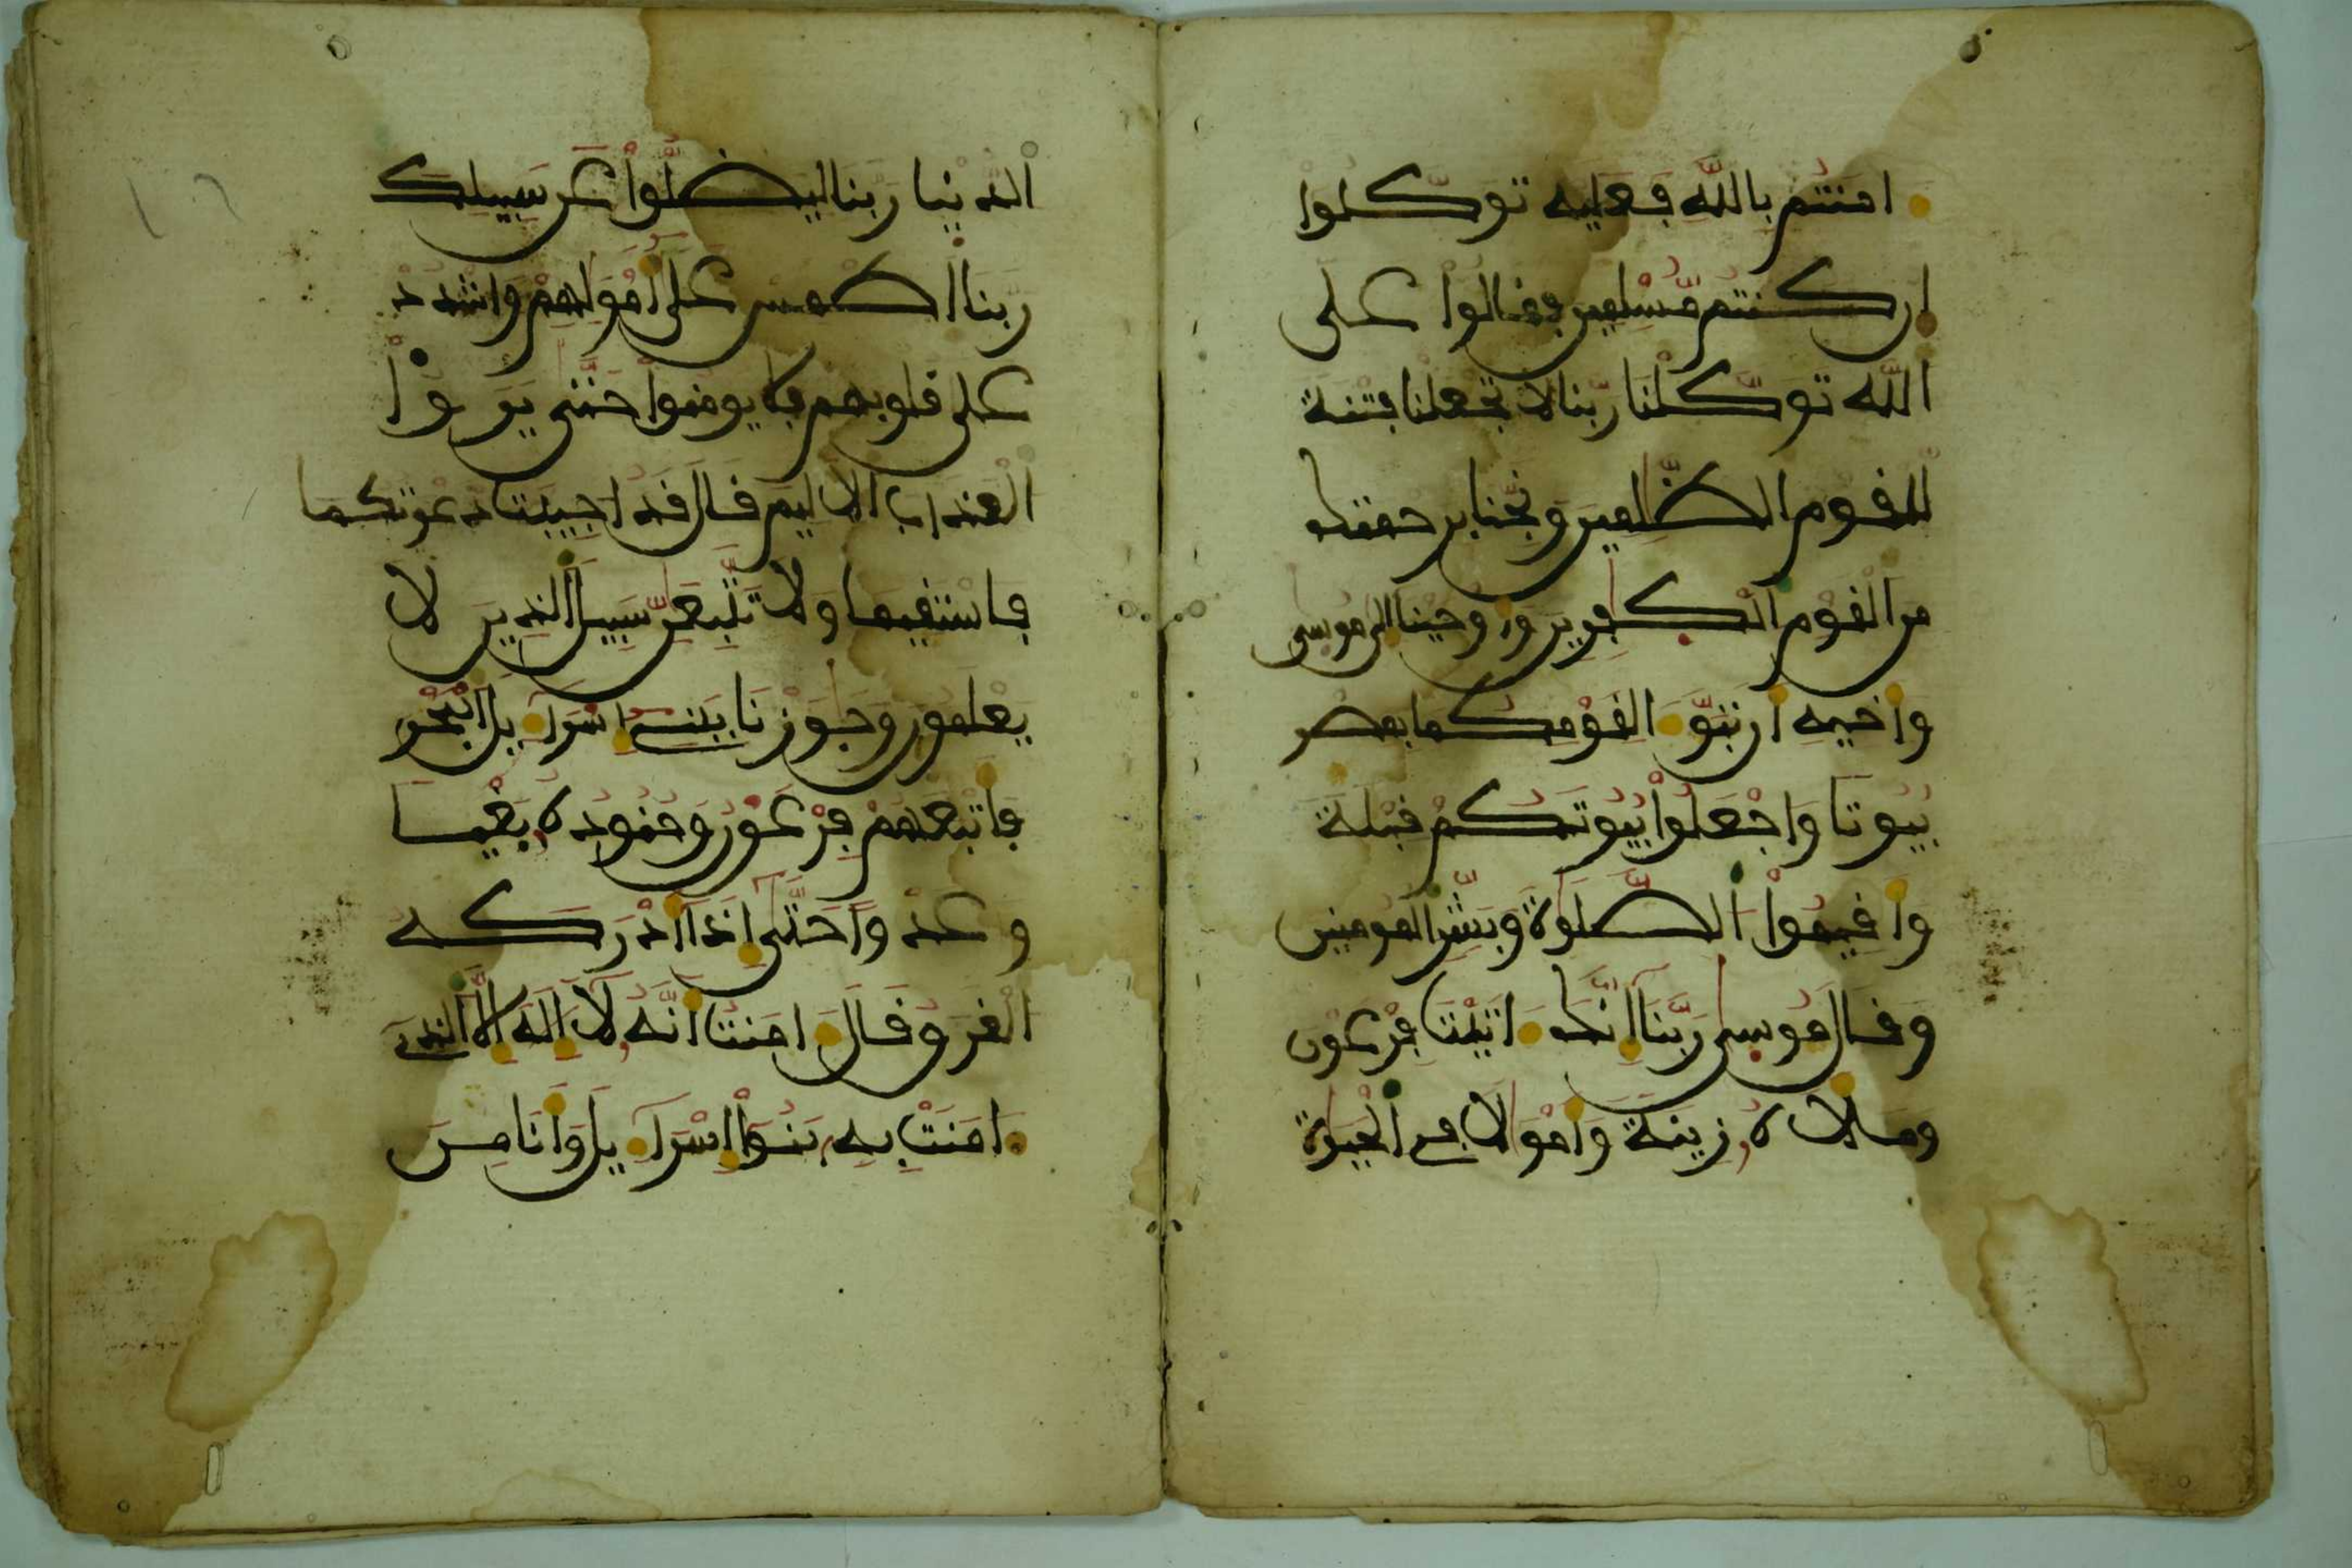 امنتم بالله فعليه توكلوا
ان كنتم مسلمين فقالوا على
الله توكلنا ربنا لا تجعلنا فتنة
للقوم الظلمين ونجنا برحمتك
من القوم الكفرين واوحينا الى موسى
واخيه ان تبوءا لقومكما بمصر
بيوتا واجعلوا بيوتكم قبلة
واقيموا الصلوة وبشر المومنين
وقال موسى ربنا انك ءاتيت فرعون
وملاه زينة وامولا في الحيوة
الدنيا ربنا ليضلوا عن سبيلك
ربنا اطمس على امولهم واشدد
على قلوبهم فلا يومنوا حتى يروا
العذاب الاليم قال قد اجيبت دعوتكما
فاستقيما ولا تتبعن سبيل الذين لا
يعلمون وجوزنا ببني اسراءيل البحر
فاتبعهم فرعون وجنوده بغيا
وعدوا حتى اذا ادركه
الغرق قال ءامنت انه لا اله الا الذي
ءامنت به بنوا اسراءيل وانا من